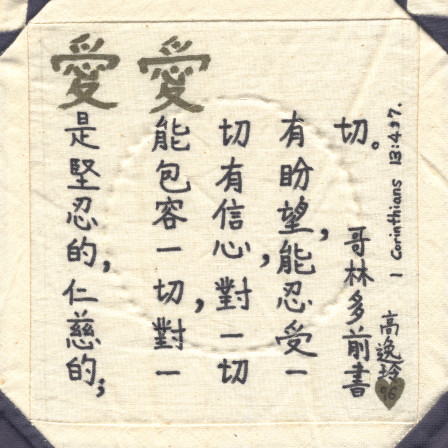 愛是堅忍的,仁慈的;
愛能包容一切,對一
切有信心,對一切
有盼望,能忍受一
切。
哥林多前書
1 Corinthians 13:4,7.
高逸玲
96